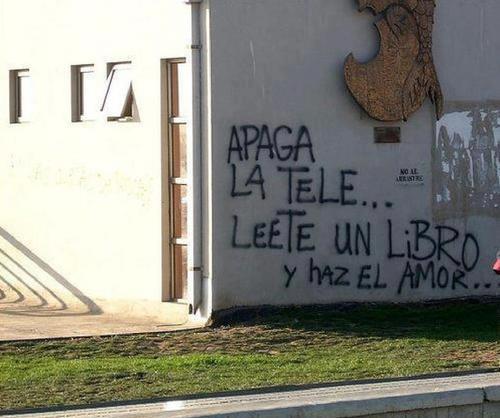 APAGA
LA TELE...
LEETE UN LiBRO
y haz EL AMOR...
NO AL
ARRASTRE